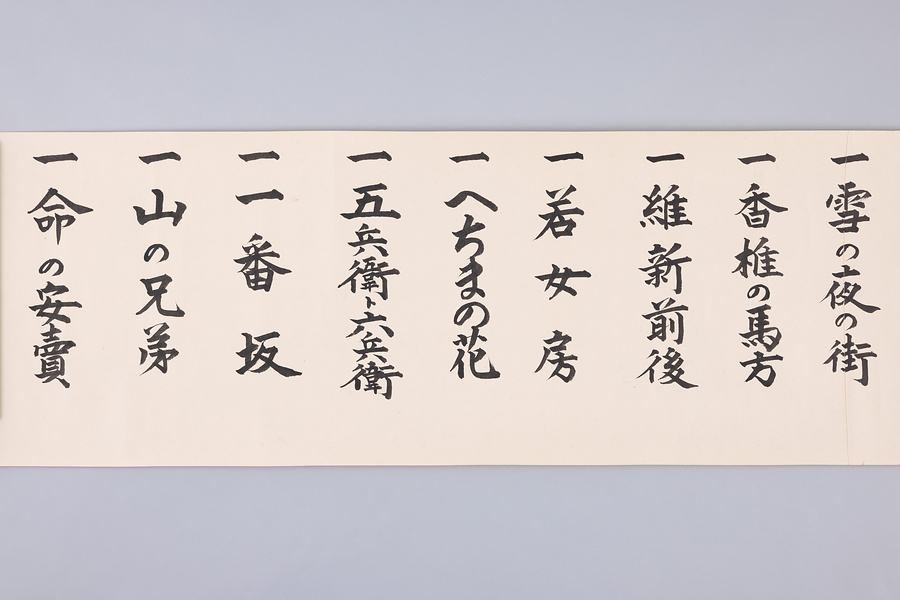 一 雪の夜の街
一 香椎の馬方
一 維新前後
一 若女房
一 へちまの花
一 五兵衛ト六兵衛
一 一番坂
一 山の兄弟
一 命の安賣